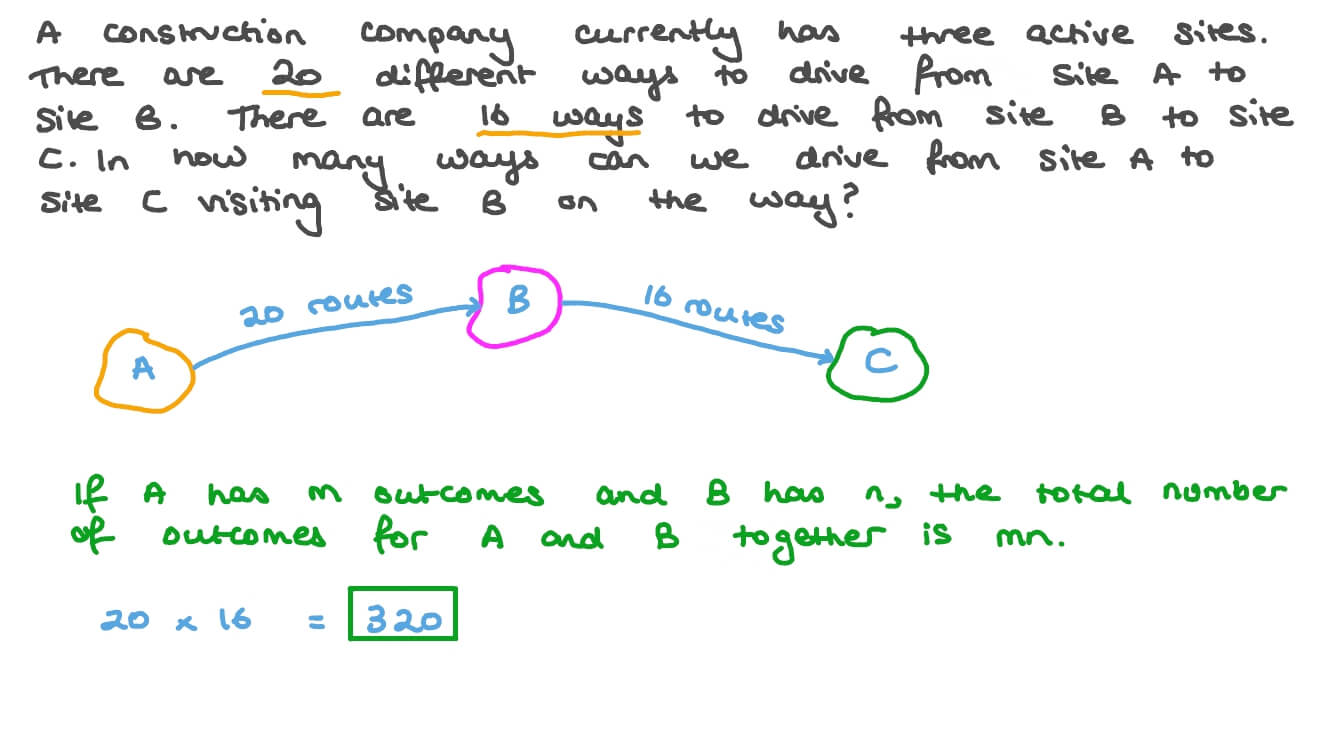 A construction company currently has three active sites.
There are 20 different ways to drive from site A to
site B. There are 16 ways to drive from site B to site
C. In how many ways can we drive from site A to
site C visiting site B on the way?
20 routes
B
16 routes
A
C
If A has m outcomes and B has n, the total number
of outcomes for A and B together is mn.
20 × 16 = 320